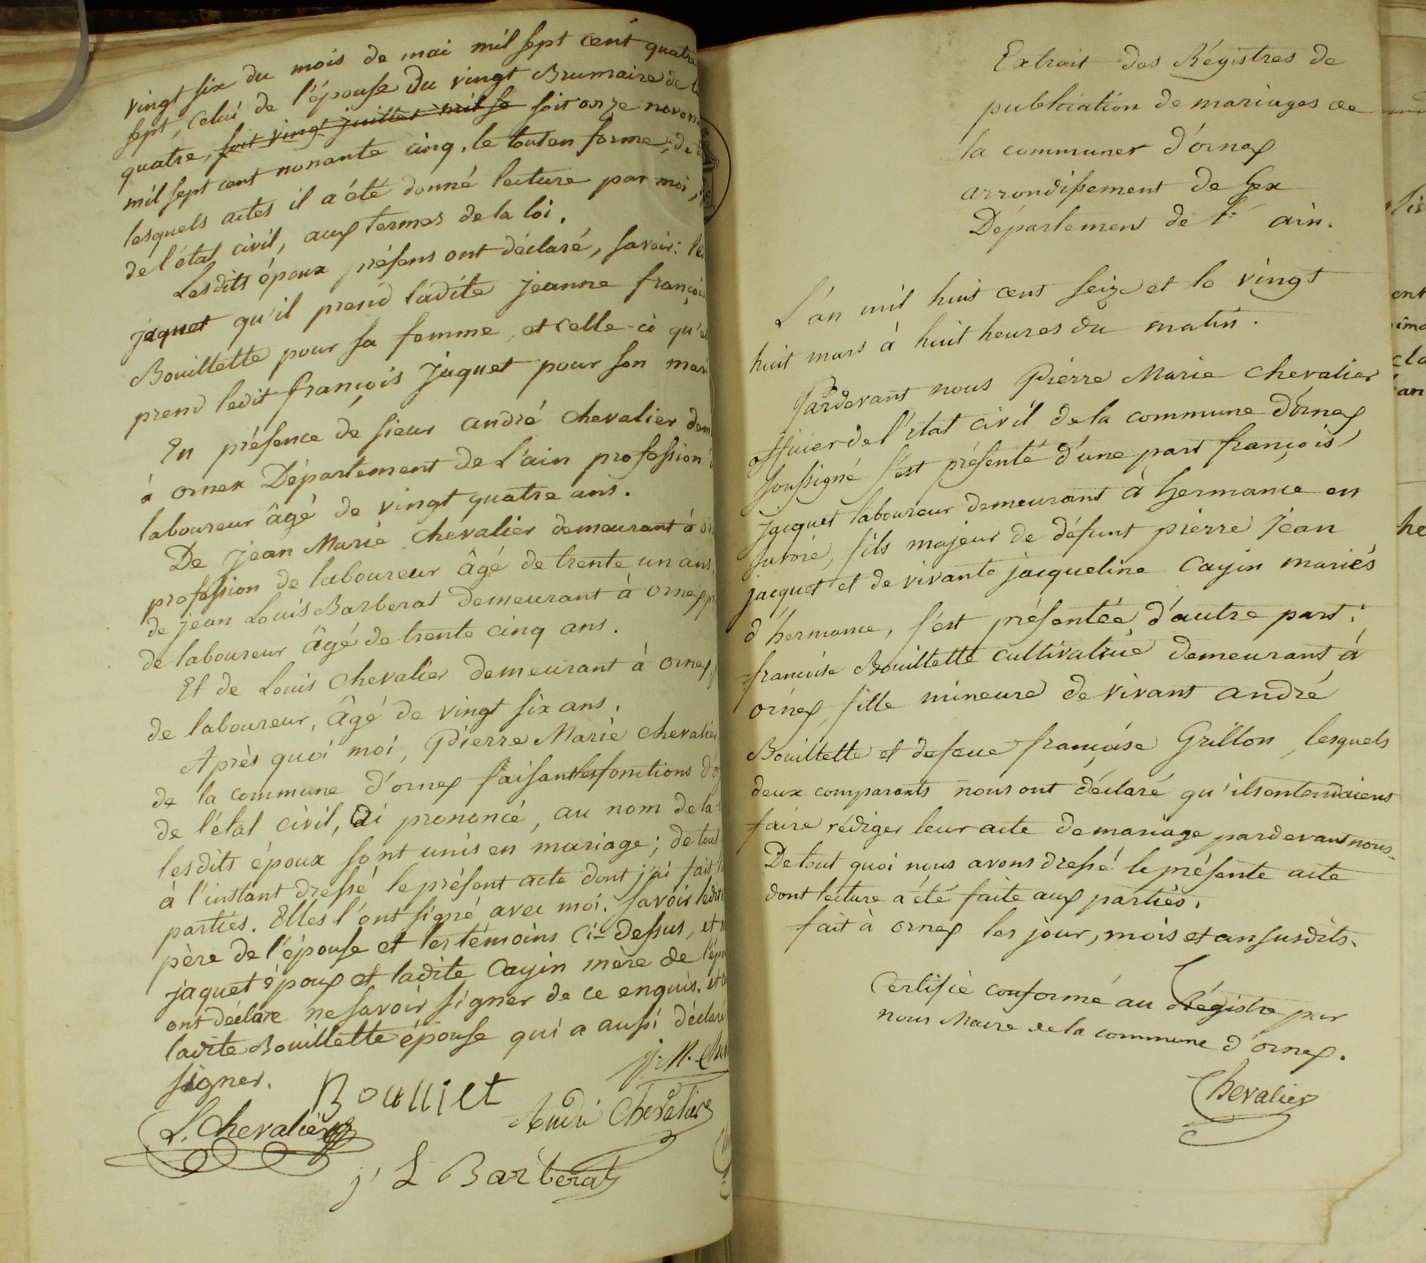 vingt six du mois de mai mil sept cent quatre
sept, celui de l'épouse du vingt Brumaire de
quatre, soit vingt juillet mil se soit onze novem
mil sept cent nonante cinq, le tout en forme; de
lesquels actes il a été donné lecture par moi,
de l'état civil, aux termes de la loi.
Lesdits époux présens ont déclaré, savoir: le
jaquet qu'il prend ladite jeanne françoise
Bouillette pour sa femme, et celle-ci qu'
prend ledit françois jaquet pour son mari
En présence de sieur andré chevalier dem
à ornex Département de L'ain profession
laboureur âgé de vingt quatre ans.
De jean Marie chevalier demeurant à
profession de laboureur âgé de trente un ans,
de jean Louis Barberat demeurant à ornex
de laboureur âgé de trente cinq ans.
Et de Louis chevalier demeurant à ornex
de laboureur, âgé de vingt six ans.
Après quoi moi, Pierre Marie chevalier
de la commune d'ornex faisant les fonctions d'
de l'état civil, ai prononcé, au nom de la
lesdits époux sont unis en mariage; de tout
à l'instant dressé le présent acte dont j'ai fait
parties. Elles l'ont signé avec moi. Savoir
père de l'épouse et les témoins ci-dessus, et
jaquet époux et ladite Cayin mère de l'ép
ont déclaré ne savoir signer de ce enquis. et
ladite Bouillette épouse qui a aussi déclaré
signer.
j. M. Che
Boulliet
André Chevalier
L. Chevalier
j L Barberat
Extrait des Régistres de
publication de mariages de
la communer d'ornex
arrondissement de Gex
Département de l' ain.
L'an mil huit cent seize et le vingt
huit mars à huit heures du matin.
Pardevant nous Pierre Marie chevalier
officier de l'état civil de la commune d'ornex
soussigné s'est présenté d'une part françois
jacquet laboureur demeurant à hermance en
savoie, fils majeur de défunt pierre jean
jacquet et de vivante jacqueline Cayin mariés
d'hermance, s'est présentée d'autre part;
françoise Bouillette cultivatrice demeurant à
ornex, fille mineure de vivant andré
Bouillette et de feue françoise Grillon, lesquels
deux comparants nous ont déclaré qu'ils entendaient
faire rédiger leur acte de mariage pardevant nous.
De tout quoi nous avons dressé le présente acte
dont lecture a été faite aux parties.
fait à ornex les jour, mois et an susdits.
Certifié conforme au Régistre par
nous Maire de la commune d'ornex.
Chevalier